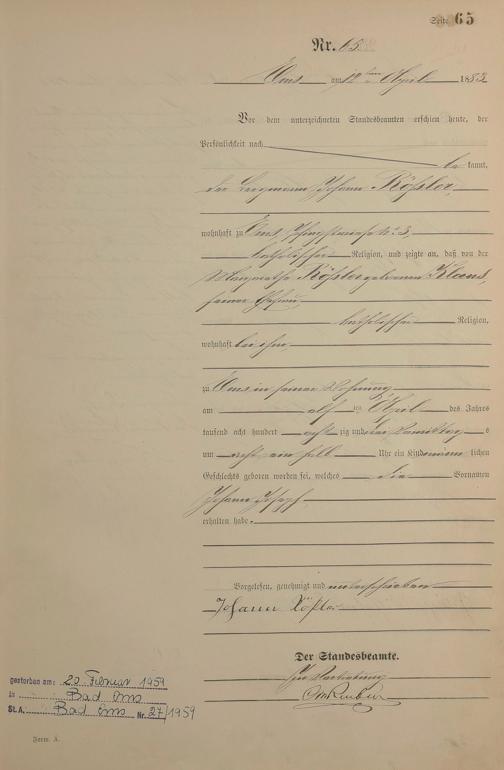 Seite 65
Nr. 65
Ems am 12ten April 1883
Vor dem unterzeichneten Standesbeamten erschien heute, der
Persönlichkeit nach
be kannt,
der Bergmann Johann Rößler,
wohnhaft zu Ems,
katholischer Religion, und zeigte an, daß von der
Margaretha Rößler geborenen Klaus,
seiner Ehefrau,
katholischer Religion,
wohnhaft bei ihm,
zu Ems in seiner Wohnung
am elften April des Jahres
tausend acht hundert acht zig und drei Vormittags
um acht ein halb Uhr ein Kind männlichen
Geschlechts geboren worden sei, welches die Vornamen
Johann Joseph
erhalten habe.
Vorgelesen, genehmigt und unterschrieben
Johann Rößler
Der Standesbeamte.
In Vertretung
gestorben am: 20. Februar 1959
in Bad Ems
St.A. Bad Ems Nr. 27/1959
Form. A.